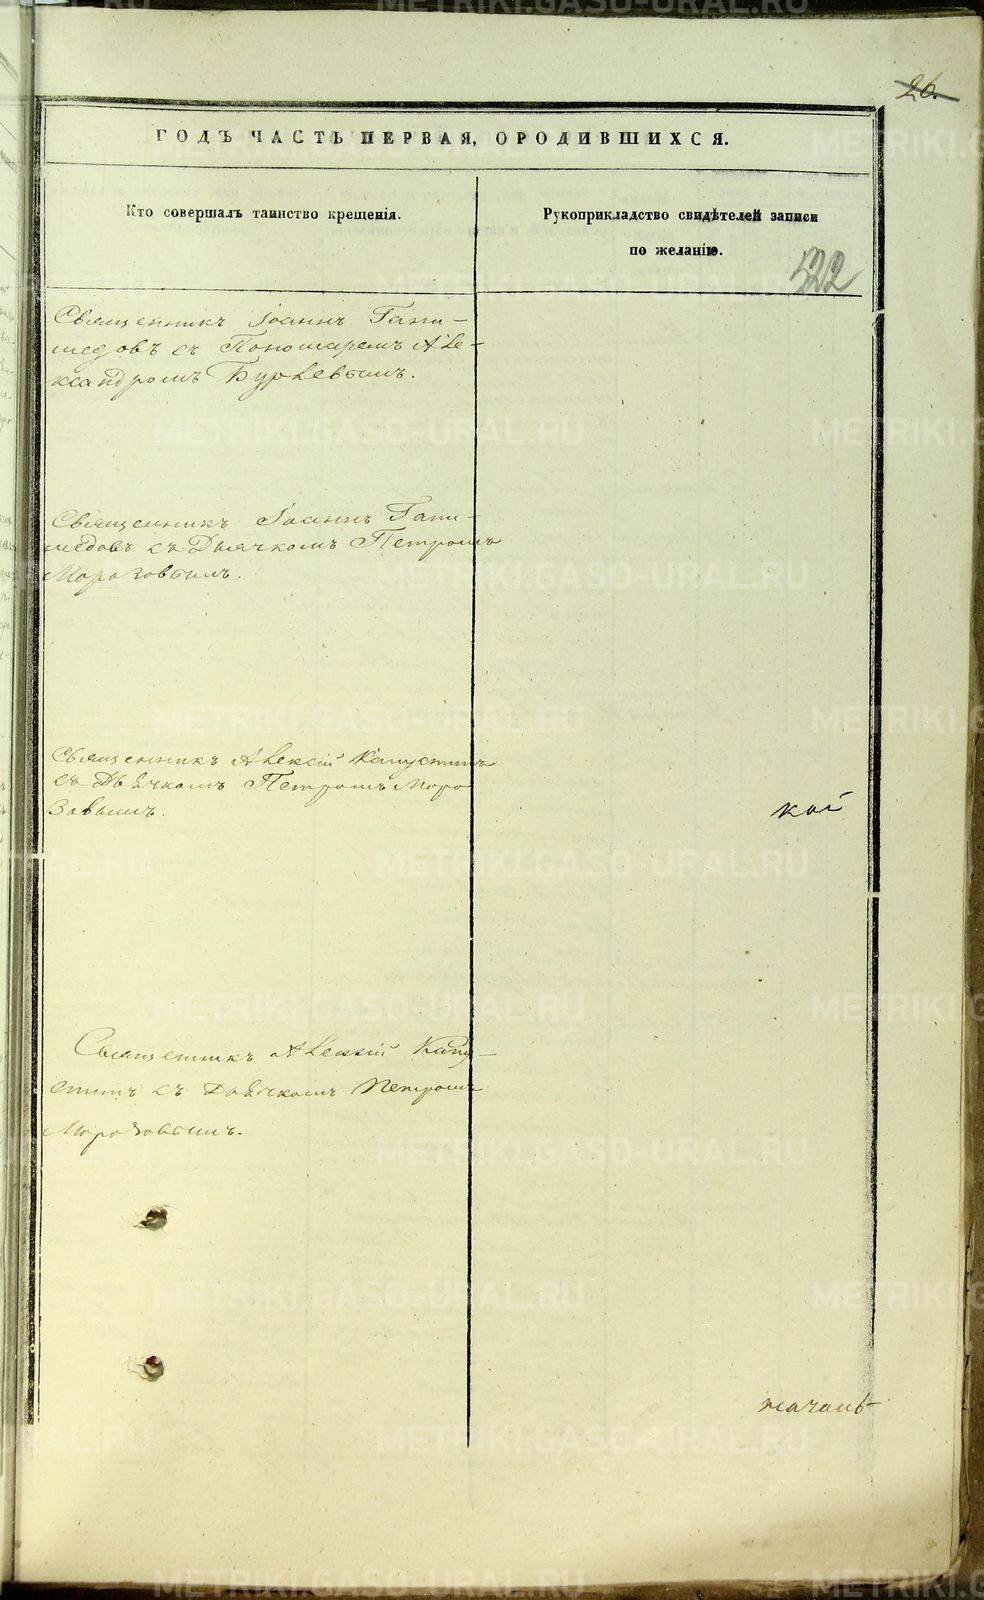 26.
ГОДЪ ЧАСТЬ ПЕРВАЯ, ОРОДИВШИХСЯ.
Кто совершалъ таинство крещенія.
Рукоприкладство свидѣтелей записи
по желанію.
522
Священникъ Іоаннъ Гани-
медовъ съ Пономаремъ Але-
ксандромъ Бурлевымъ.
Священникъ Іоаннъ Гани-
медовъ съ Дьячкомъ Петромъ
Морозовымъ.
Священникъ Алексій Капустинъ
съ Дьячкомъ Петромъ Моро
зовымъ.
кой
Священникъ Алексій Капу-
стинъ съ Дьячкомъ Петромъ
Морозовымъ.
METRIKI.GASO-URAL.RU